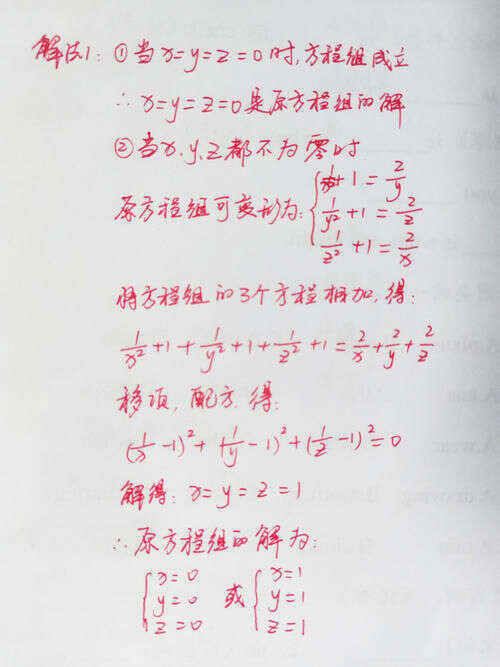 解法1: ①当x=y=z=0时,方程组成立
∴ x=y=z=0是原方程组的解
②当x、y、z都不为零时
原方程组可变形为: { 1/x²+1=2/y
1/y²+1=2/z
1/z²+1=2/x
将方程组的3个方程相加,得:
1/x²+1+1/y²+1+1/z²+1=2/x+2/y+2/z
移项,配方,得:
(1/x-1)²+(1/y-1)²+(1/z-1)²=0
解得: x=y=z=1
∴原方程组的解为:
{ x=0 y=0 z=0 或 { x=1 y=1 z=1